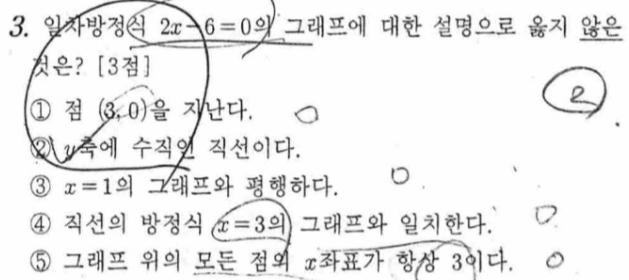 3. 일차방정식 2x-6=0의 그래프에 대한 설명으로 옳지 않은
것은? [3점]
① 점 (3, 0)을 지난다.
② y축에 수직인 직선이다.
③ x=1의 그래프와 평행하다.
④ 직선의 방정식 x=3의 그래프와 일치한다.
⑤ 그래프 위의 모든 점의 x좌표가 항상 3이다.
2